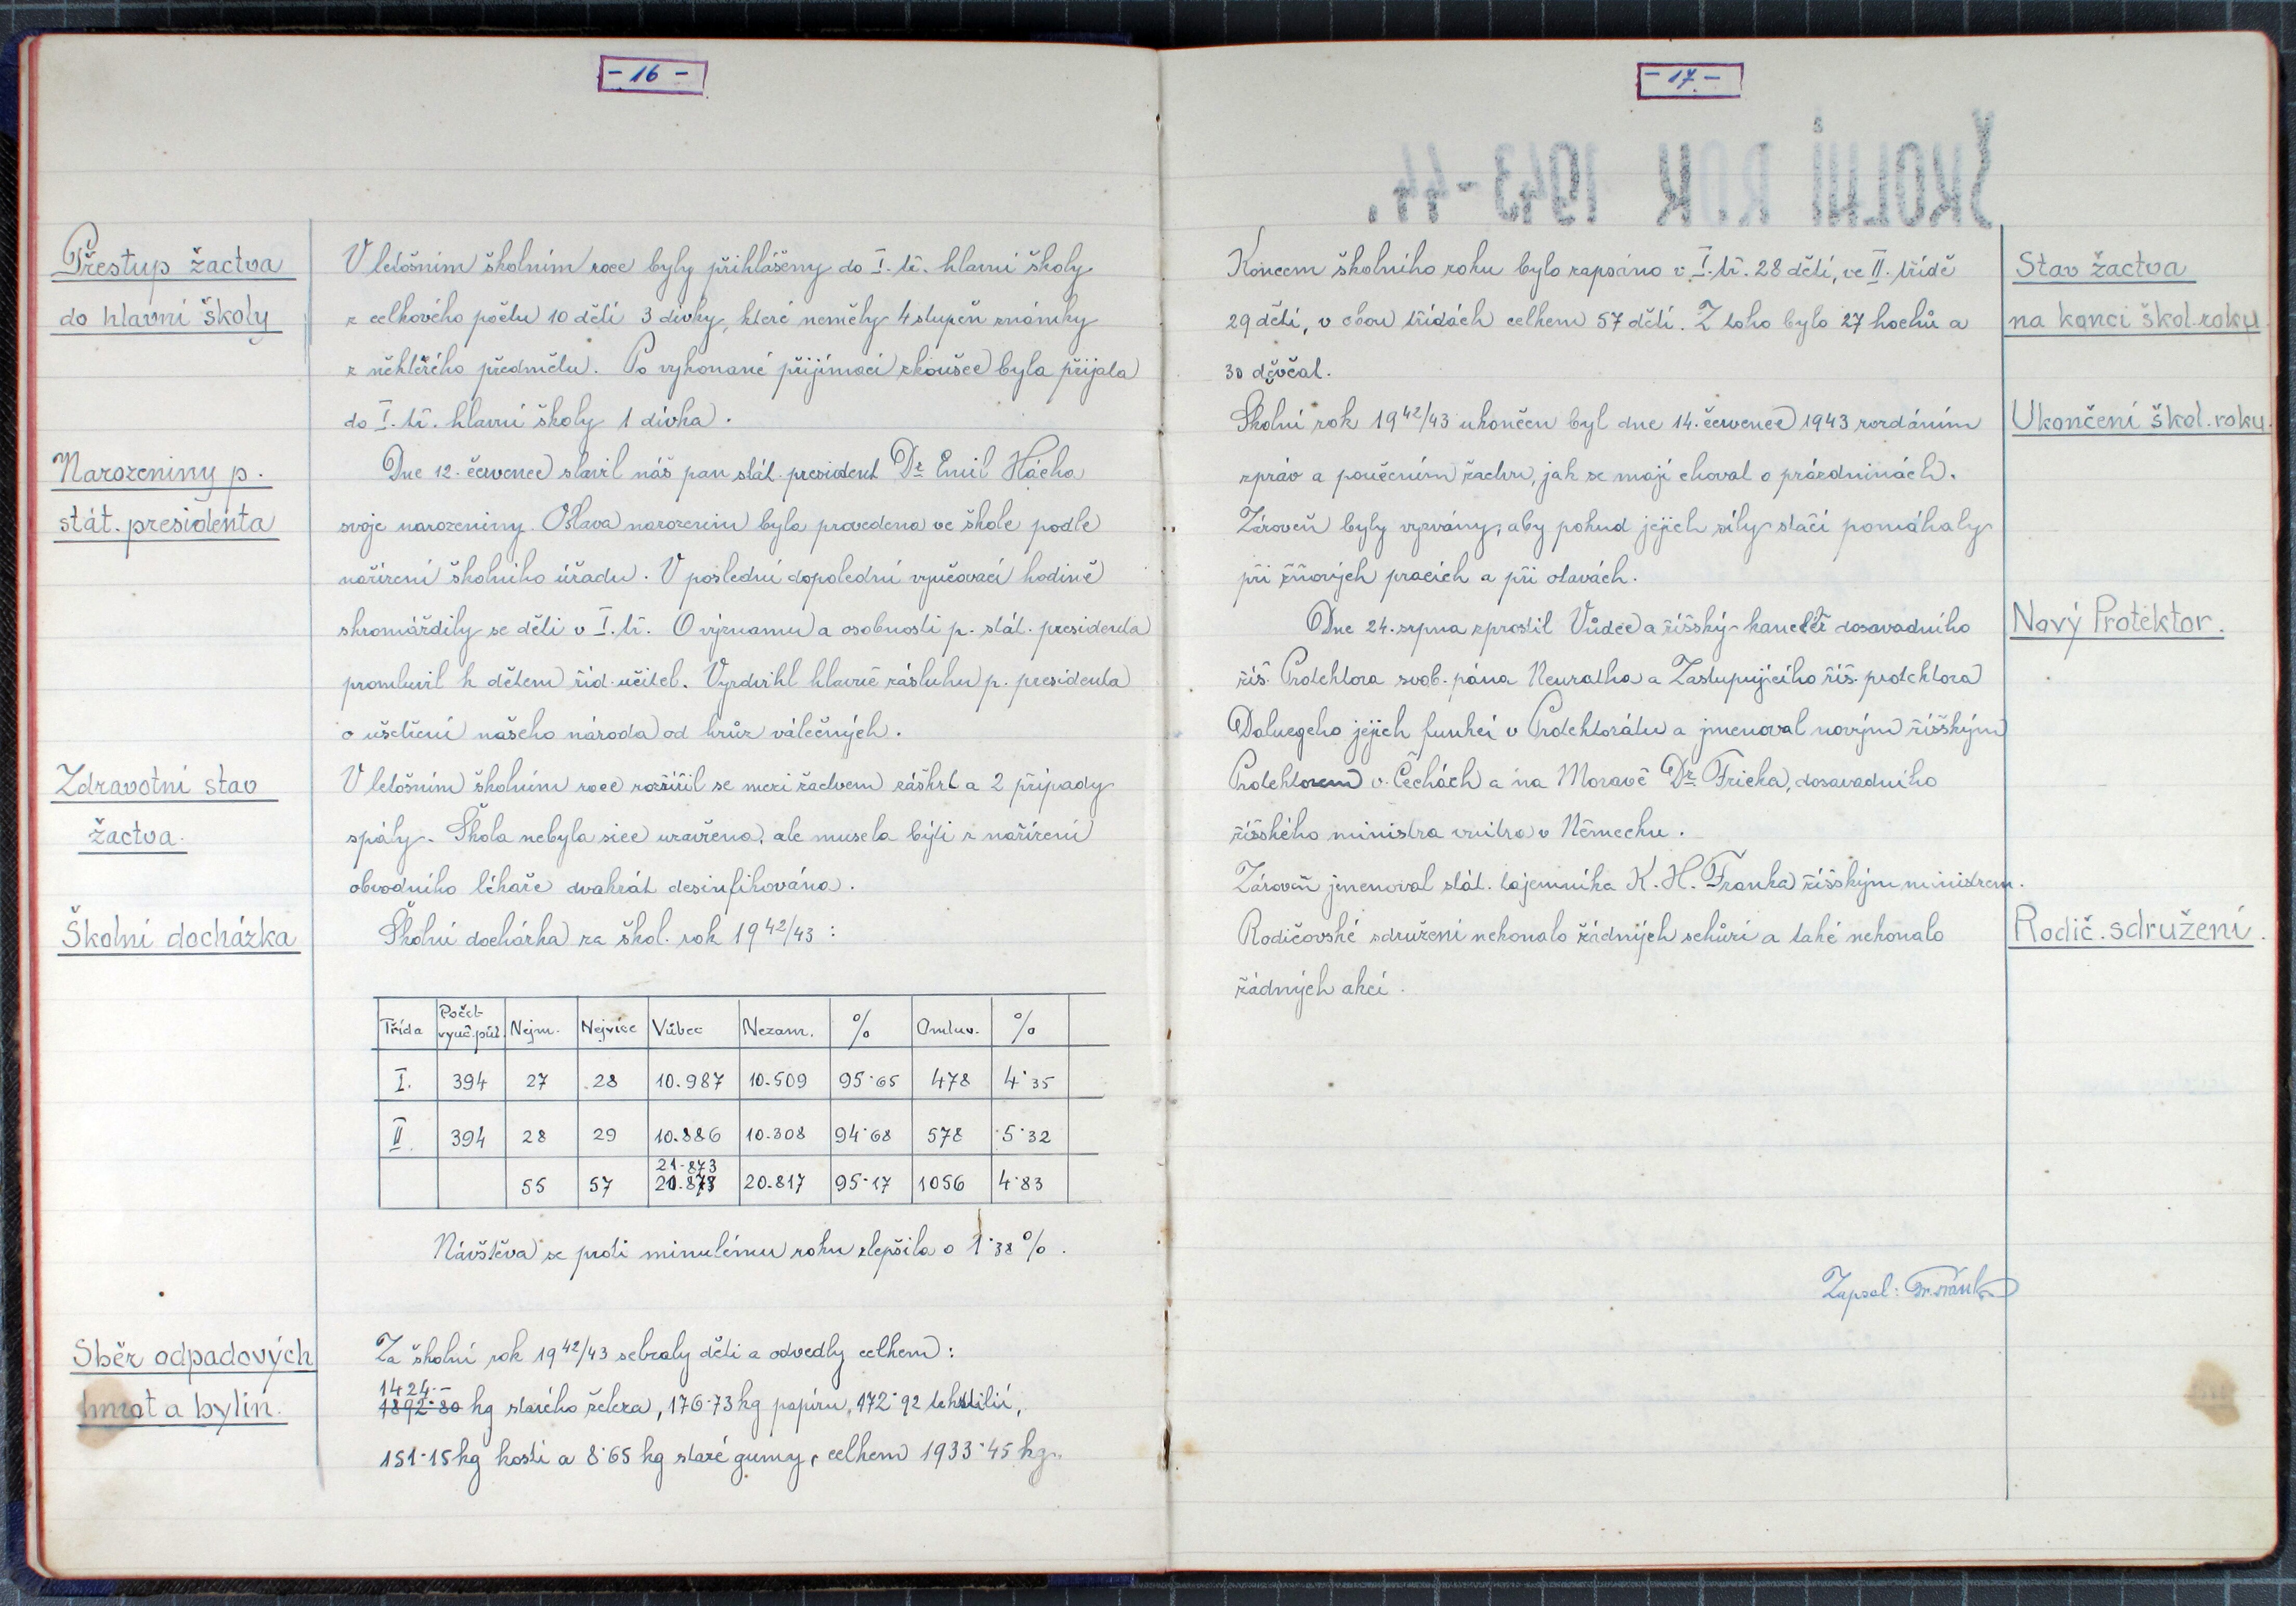 - 16 -
Přestup žactva
do hlavní školy
V letošním školním roce byly přihlášeny do I. tř. hlavní školy
z celkového počtu 10 dětí 3 dívky, které neměly 4 stupeň známky
z některého předmětu. Po vykonané přijímací zkoušce byla přijata
do I. tř. hlavní školy 1 dívka.
Narozeniny p.
stát. presidenta
Dne 12. července slavil náš pan stát. president Dr Emil Hácha
svoje narozeniny. Oslava narozenin byla provedena ve škole podle
nařízení školního úřadu. V poslední dopolední vyučovací hodině
shromáždily se děti v I. tř. O významu a osobnosti p. stát. presidenta
promluvil k dětem říd. učitel. Vyzdvihl hlavně zásluhu p. presidenta
o ušetření našeho národa od hrůz válečných.
Zdravotní stav
žactva.
V letošním školním roce rozšířil se mezi žactvem záškrt a 2 případy
spály. Škola nebyla sice uzavřena, ale musela býti z nařízení
obvodního lékaře dvakrát desinfikována.
Školní docházka
Školní docházka za škol. rok 1942/43 :
Třída Počet vyuč. půl. Nejm. Nejvíce Vůbec Nezam. % Omluv. %
I. 394 27 28 10.987 10.509 95·65 478 4·35
II. 394 28 29 10.886 10.308 94·68 578 5·32
21.873
55 57 20.873 20.817 95·17 1056 4·83
Návštěva se proti minulému roku zlepšila o 1·38 %.
Sběr odpadových
hmot a bylin.
Za školní rok 1942/43 sebraly děti a odvedly celkem :
1424.-
1892·80 kg starého železa, 176·73 kg papíru, 172·92 tekstilií,
151·15 kg kostí a 8·65 kg staré gumy, celkem 1933·45 kg.
- 17 -
ŠKOLNÍ ROK 1943-44.
Koncem školního roku bylo zapsáno v I. tř. 28 dětí, ve II. třídě
29 dětí, v obou třídách celkem 57 dětí. Z toho bylo 27 hochů a
30 děvčat.
Stav žactva
na konci škol. roku
Školní rok 1942/43 ukončen byl dne 14. července 1943 rozdáním
zpráv a poučením žactvu, jak se mají chovat o prázdninách.
Zároveň byly vyzvány, aby pokud jejich síly stačí pomáhaly
při žňových pracích a při otavách.
Ukončení škol. roku.
Dne 24. srpna zprostil Vůdce a říšský kancléř dosavadního
říš. Protektora svob. pána Neuratha a Zastupujícího říš. protektora
Daluegeho jejich funkcí v Protektorátu a jmenoval novým říšským
Protektorem v Čechách a na Moravě Dr Fricka, dosavadního
říšského ministra vnitra v Německu.
Zároveň jmenoval stát. tajemníka K. H. Franka říšským ministrem.
Nový Protektor.
Rodičovské sdružení nekonalo žádných schůzí a také nekonalo
žádných akcí.
Rodič. sdružení.
Zapsal: